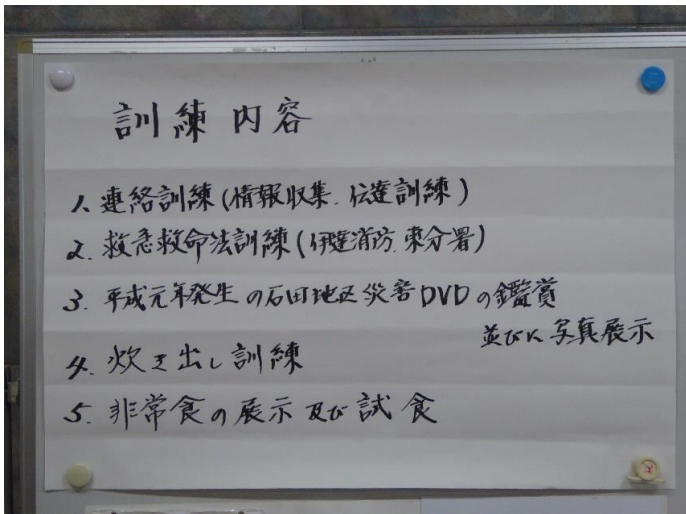 訓練内容
1. 連絡訓練(情報収集.伝達訓練)
2. 救急救命法訓練(伊達消防.東分署)
3. 平成元年発生の石田地区災害DVDの鑑賞
並びに写真展示
4. 炊き出し訓練
5. 非常食の展示及び試食